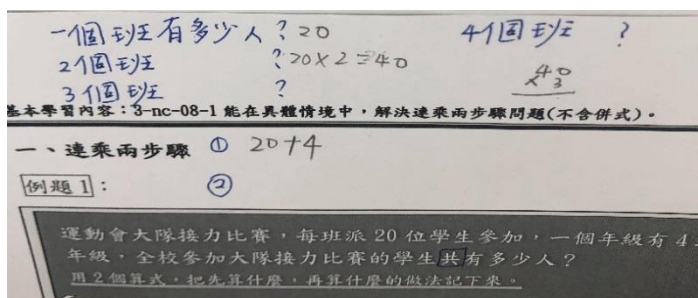 一個班有多少人？20 4個班 ？
2個班 ？20×2=40
3個班 ？ 40
×3
基本學習內容：3-nc-08-1 能在具體情境中，解決連乘兩步驟問題(不含併式)。
一、連乘兩步驟 ① 20+4
例題1： ②
運動會大隊接力比賽，每班派 20 位學生參加，一個年級有 4
年級，全校參加大隊接力比賽的學生共有多少人？
用2個算式，把先算什麼，再算什麼的做法記下來。